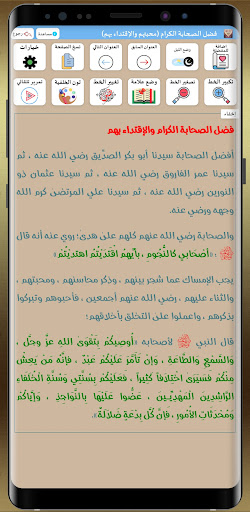 فضل الصحابة الكرام (محبتهم والاقتداء بهم)
مساعدة
رجوع
خيارات
نسخ الصفحة
العنوان التالي
العنوان السابق
وضع الليل
إضافة للمفضلة
تمرير تلقائي
لون الخلفية
تغيير الخط
وضع علامة
تصغير الخط
تكبير الخط
إخفاء
فضل الصحابة الكرام والإقتداء بهم
أفضل الصحابة سيدنا أبو بكر الصدّيق رضي الله عنه ، ثم
سيدنا عمر الفاروق رضي الله عنه ، ثم سيدنا عثمان ذو
النورين رضي الله عنه ، ثم سيدنا علي المرتضى كرم الله
وجهه ورضي عنه.
والصحابة رضي الله عنهم كلهم على هدى؛ روي عنه أنه قال
ﷺ : «أصحابي كالنُّجوم ، بأيّهم اقْتَدَيْتُم اهتديْتُم»
يجب الإمساك عما شجر بينهم ، وذكر محاسنهم ، ومحبتهم ،
والثناء عليهم ، رضي الله عنهم أجمعين ، فأحبوهم وتبركوا
بذكرهم ، واعملوا على التخلق بأخلاقهم؛
قال النبي ﷺ لأصحابه «أُوصِيكُم بِتَقْوَى اللهِ عزَّ وجلَّ ،
والسَّمْعِ والطَّاعَةِ ، وإن تَأَمَّرَ عَلَيْكُم عَبْدٌ ، فَإِنَّهُ مَن يَعِشْ
مِنْكُم فَسَيَرَى اخْتِلَافاً كَثِيراً ، فَعَلَيْكُم بِسُنَّتِي وَسُنَّةِ الْخُلَفَاءِ
الرَّاشِدِينَ الْمَهْدِيِّينَ ، عَضُّوا عَلَيْهَا بِالنَّوَاجِذِ ، وَإِيَّاكُمْ
وَمُحْدَثَاتِ الْأُمُورِ ، فَإِنَّ كُلَّ بِدْعَةٍ ضَلَالَةٌ».